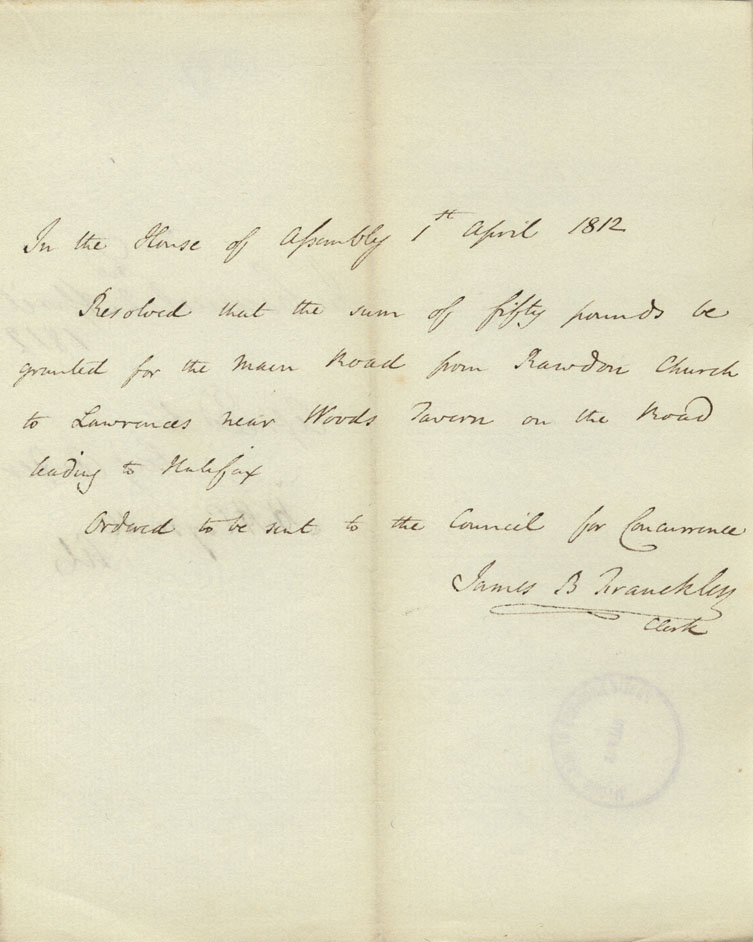 In the House of Assembly 1st April 1812
Resolved that the sum of fifty pounds be
granted for the main Road from Rawdon Church
to Lawrences near Woods Tavern on the Road
leading to Halifax
Ordered to be sent to the Council for Concurrence
James B Franckley
Clerk